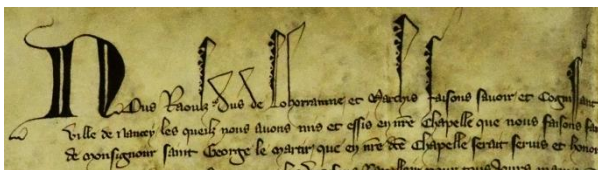 Nous Raoulz dus de Lohorrainne et Marchis faisons savoir et Cogn
ville de Nancey les queilz nous avons mis et essis en nre Chapelle que nous faisons fa
de monsignour saint George le martir que en nre dte Chapelle serait servis et honor